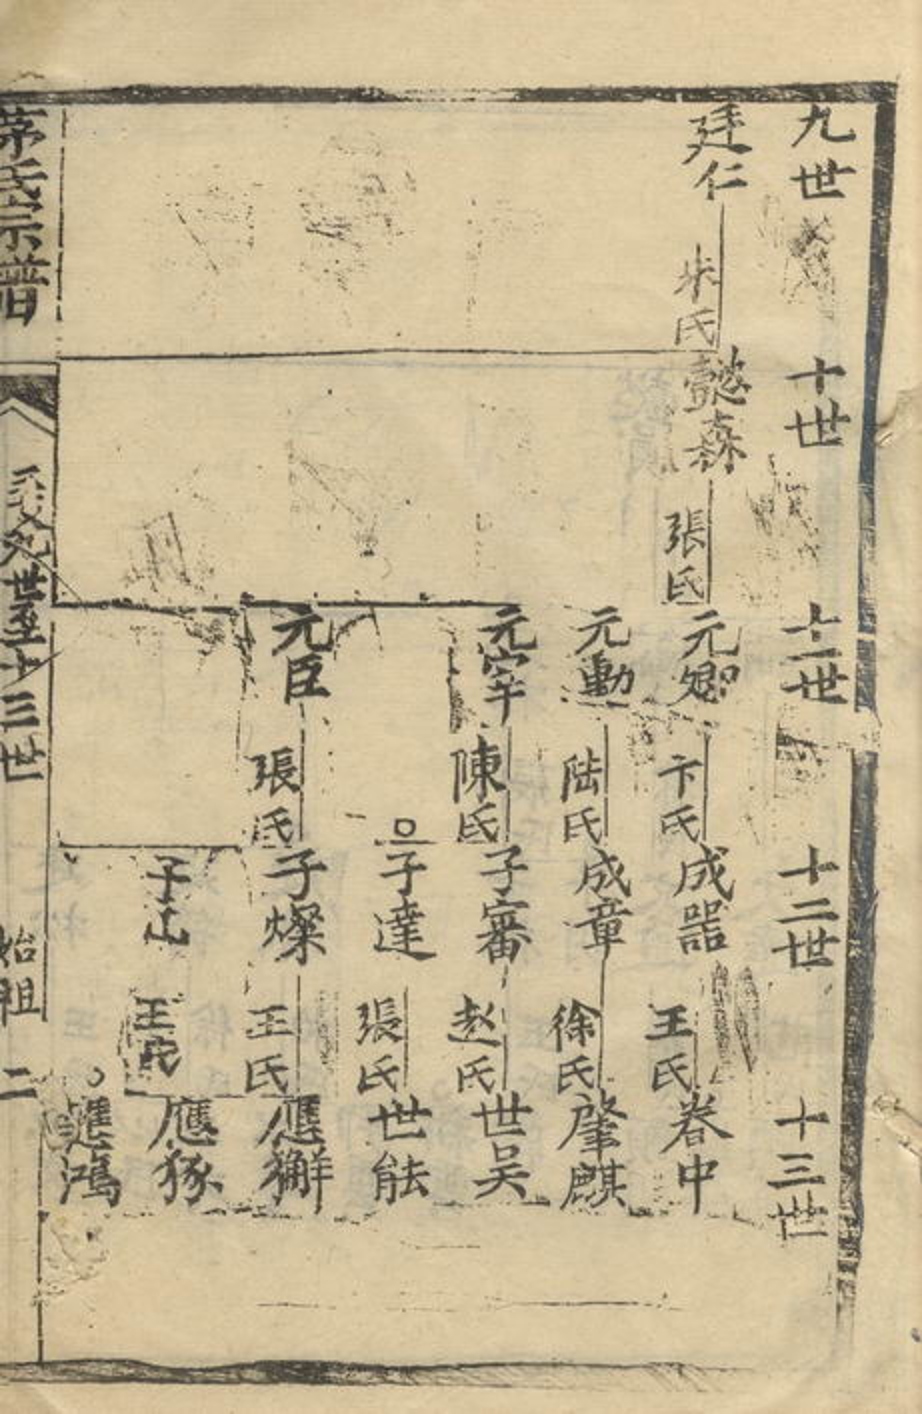 九世
十世
十一世
十二世
十三世
廷仁
朱氏
懿森
張氏
元卿
卞氏
成器
王氏
春中
元勳
陆氏
成章
徐氏
肇麒
元宰
陳氏
子審
赵氏
世吴
子達
張氏
世能
元臣
張氏
子燦
王氏
應獬
子山
王氏
應豸
進鴻
茅氏宗譜
九世至十三世
始祖
二